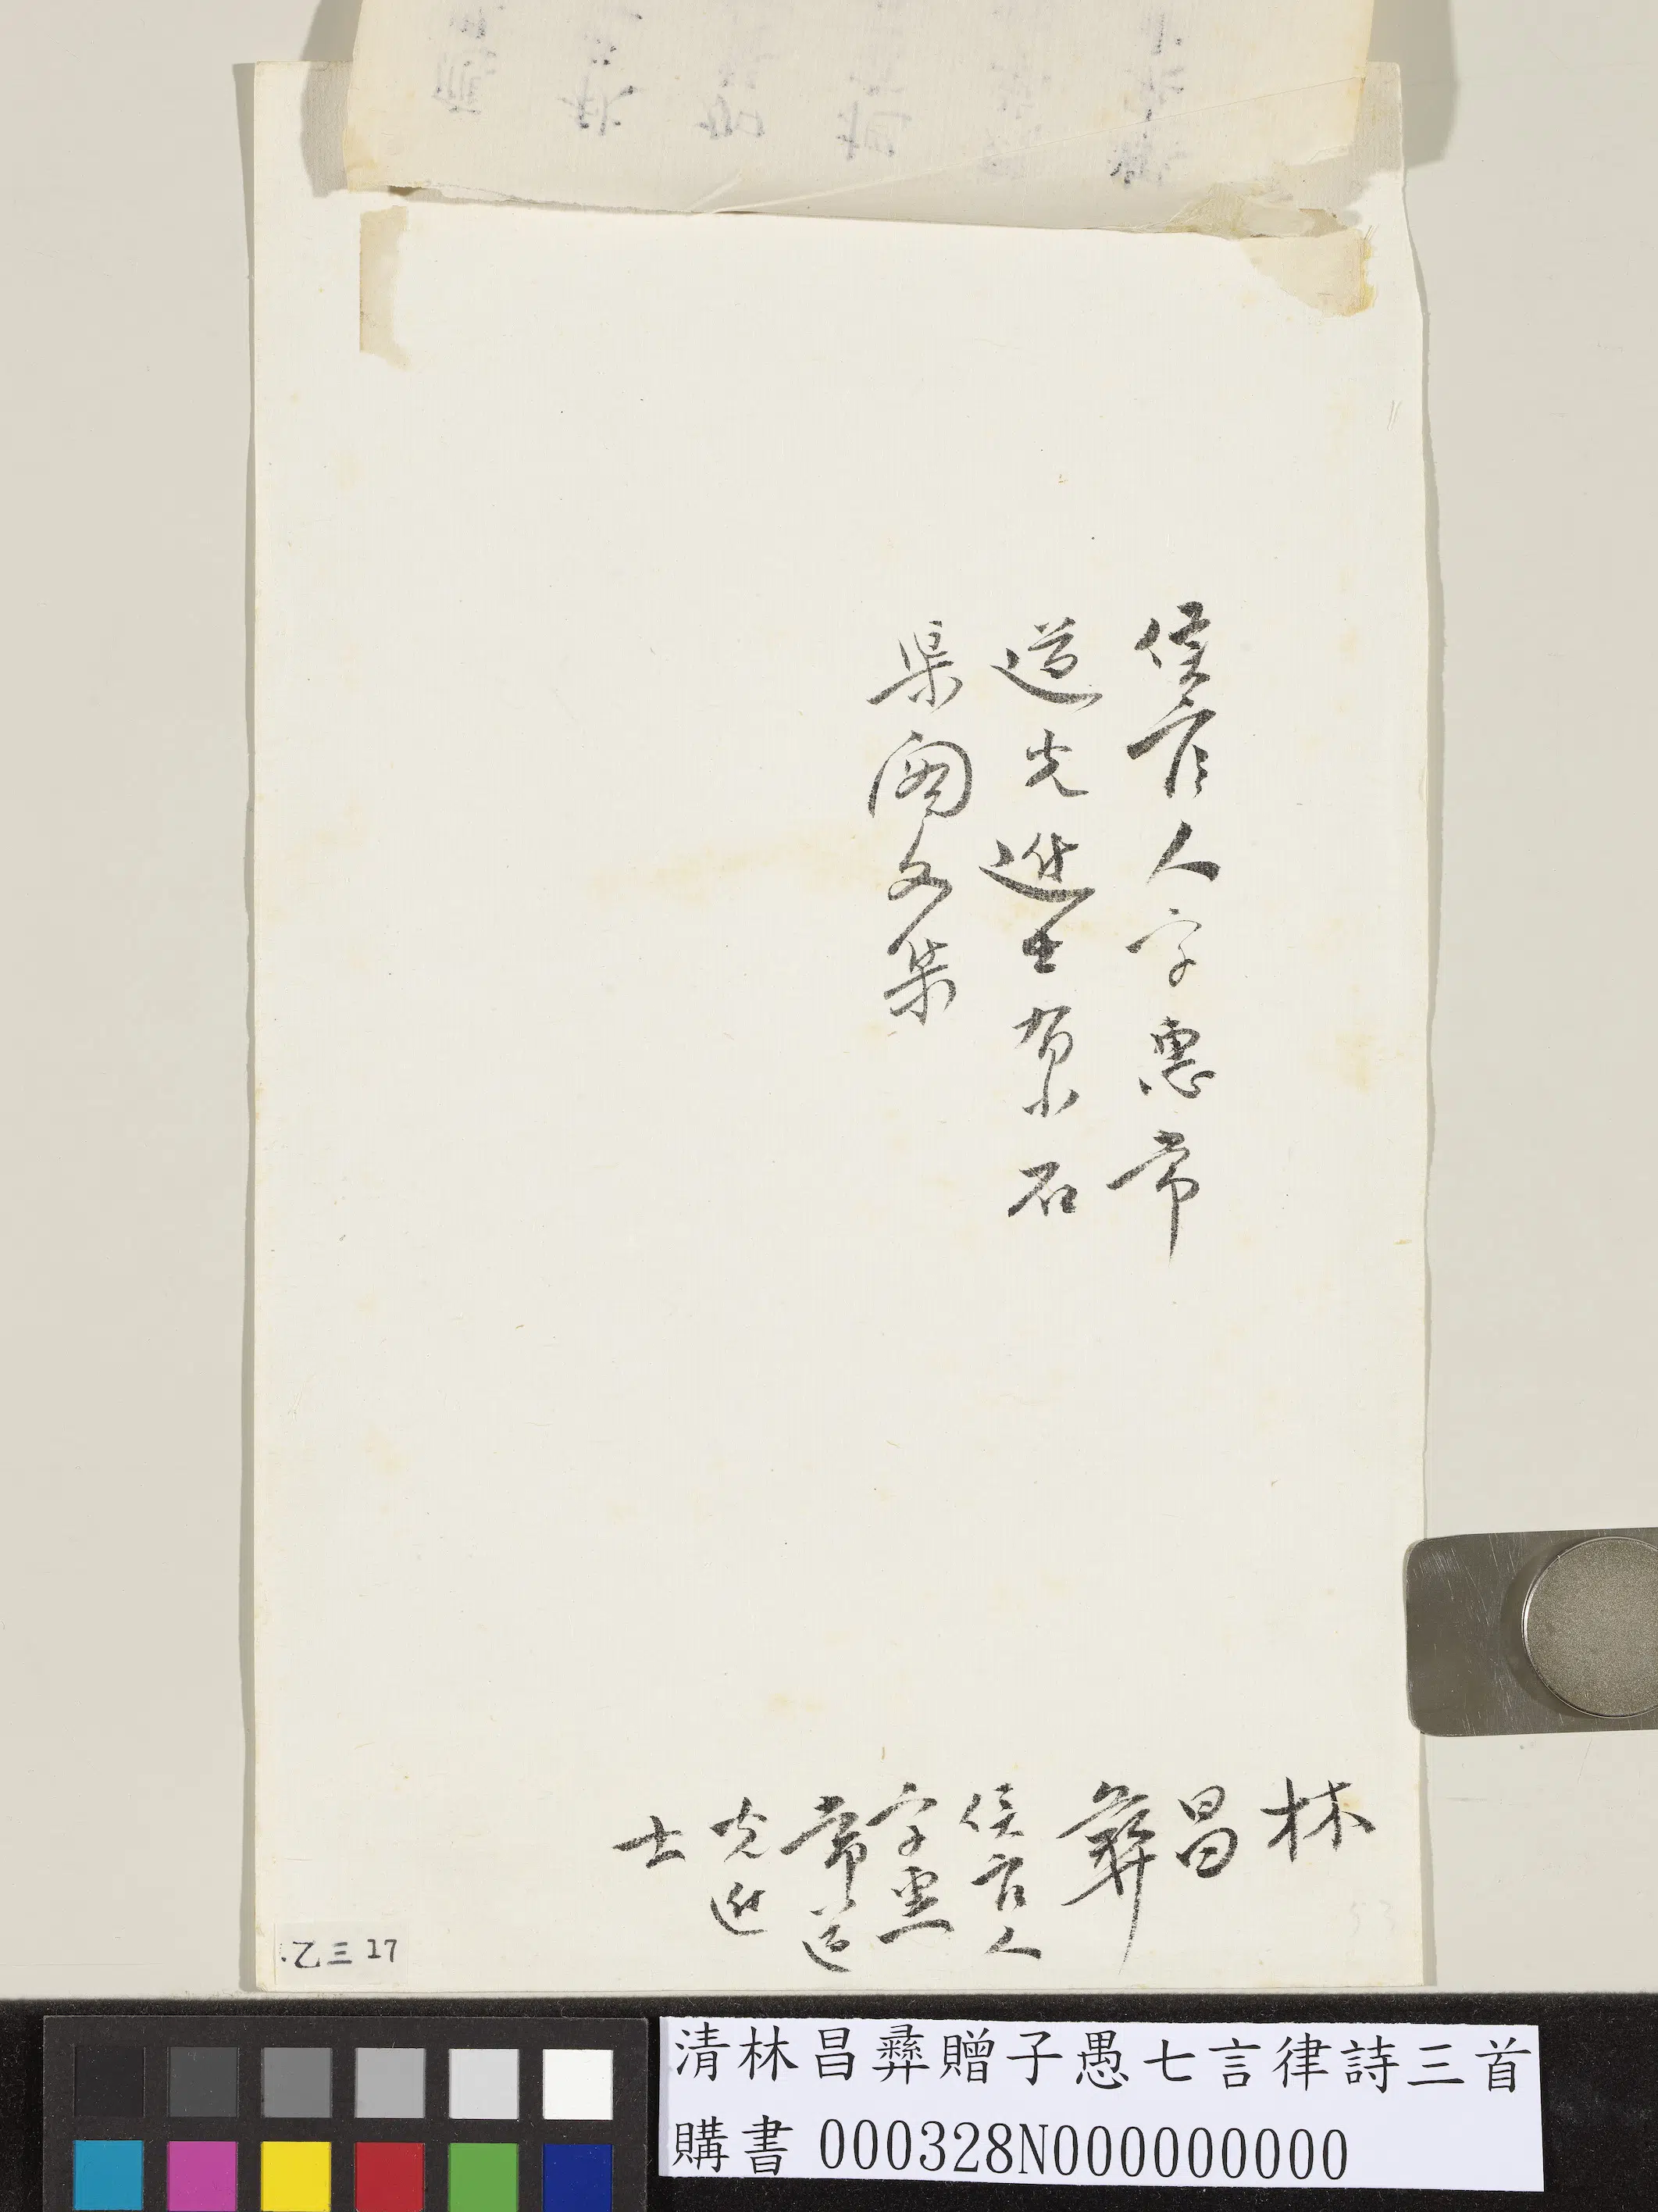 侯官人字惠常
道光進士有小石
渠閣文集
林昌彝
侯官人
字惠
常道
光進
士
乙三17
清林昌彝贈子愚七言律詩三首
購書 000328N000000000